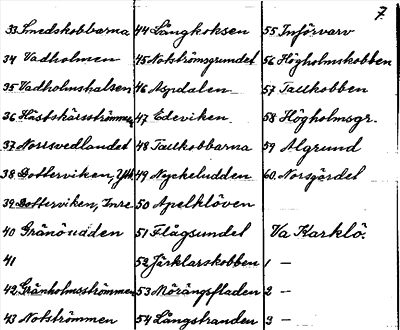 7.
33 Smedskobbarna
34 Vadholmen
35 Vadholmshalsen
36 Hästskärsströmmen
37 Norrsvedlandet
38 Dotterviken, Ytt
39 Dotterviken, Inre
40 Granöudden
41
42 Granholmsströmmen
43 Notströmmen
44 Långkoksen
45 Notströmsgrundet
46 Aspdalen
47 Edeviken
48 Tallkobbarna
49 Nyckeludden
50 Apelklöven
51 Flågsundet
52 Järklarskobben
53 Mörängsfladen
54 Långstranden
55 Införvarv
56 Högholmskobben
57 Tallkobben
58 Högholmsgr.
59 Algrund
60 Norsgärdet
Va Karklö.
1 —
2 —
3 —